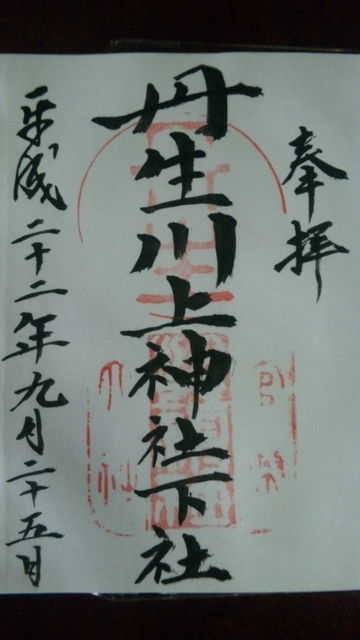 奉拝
丹生川上神社下社
平成二十二年九月二十五日